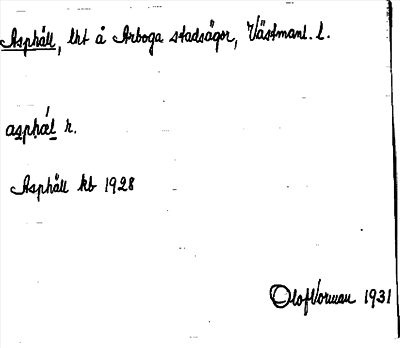 Asphäll, lht å Arboga stadsägor, Västmanl. l.
asphæ̀l r.
Asphäll kb 1928
Olof Vorman 1931